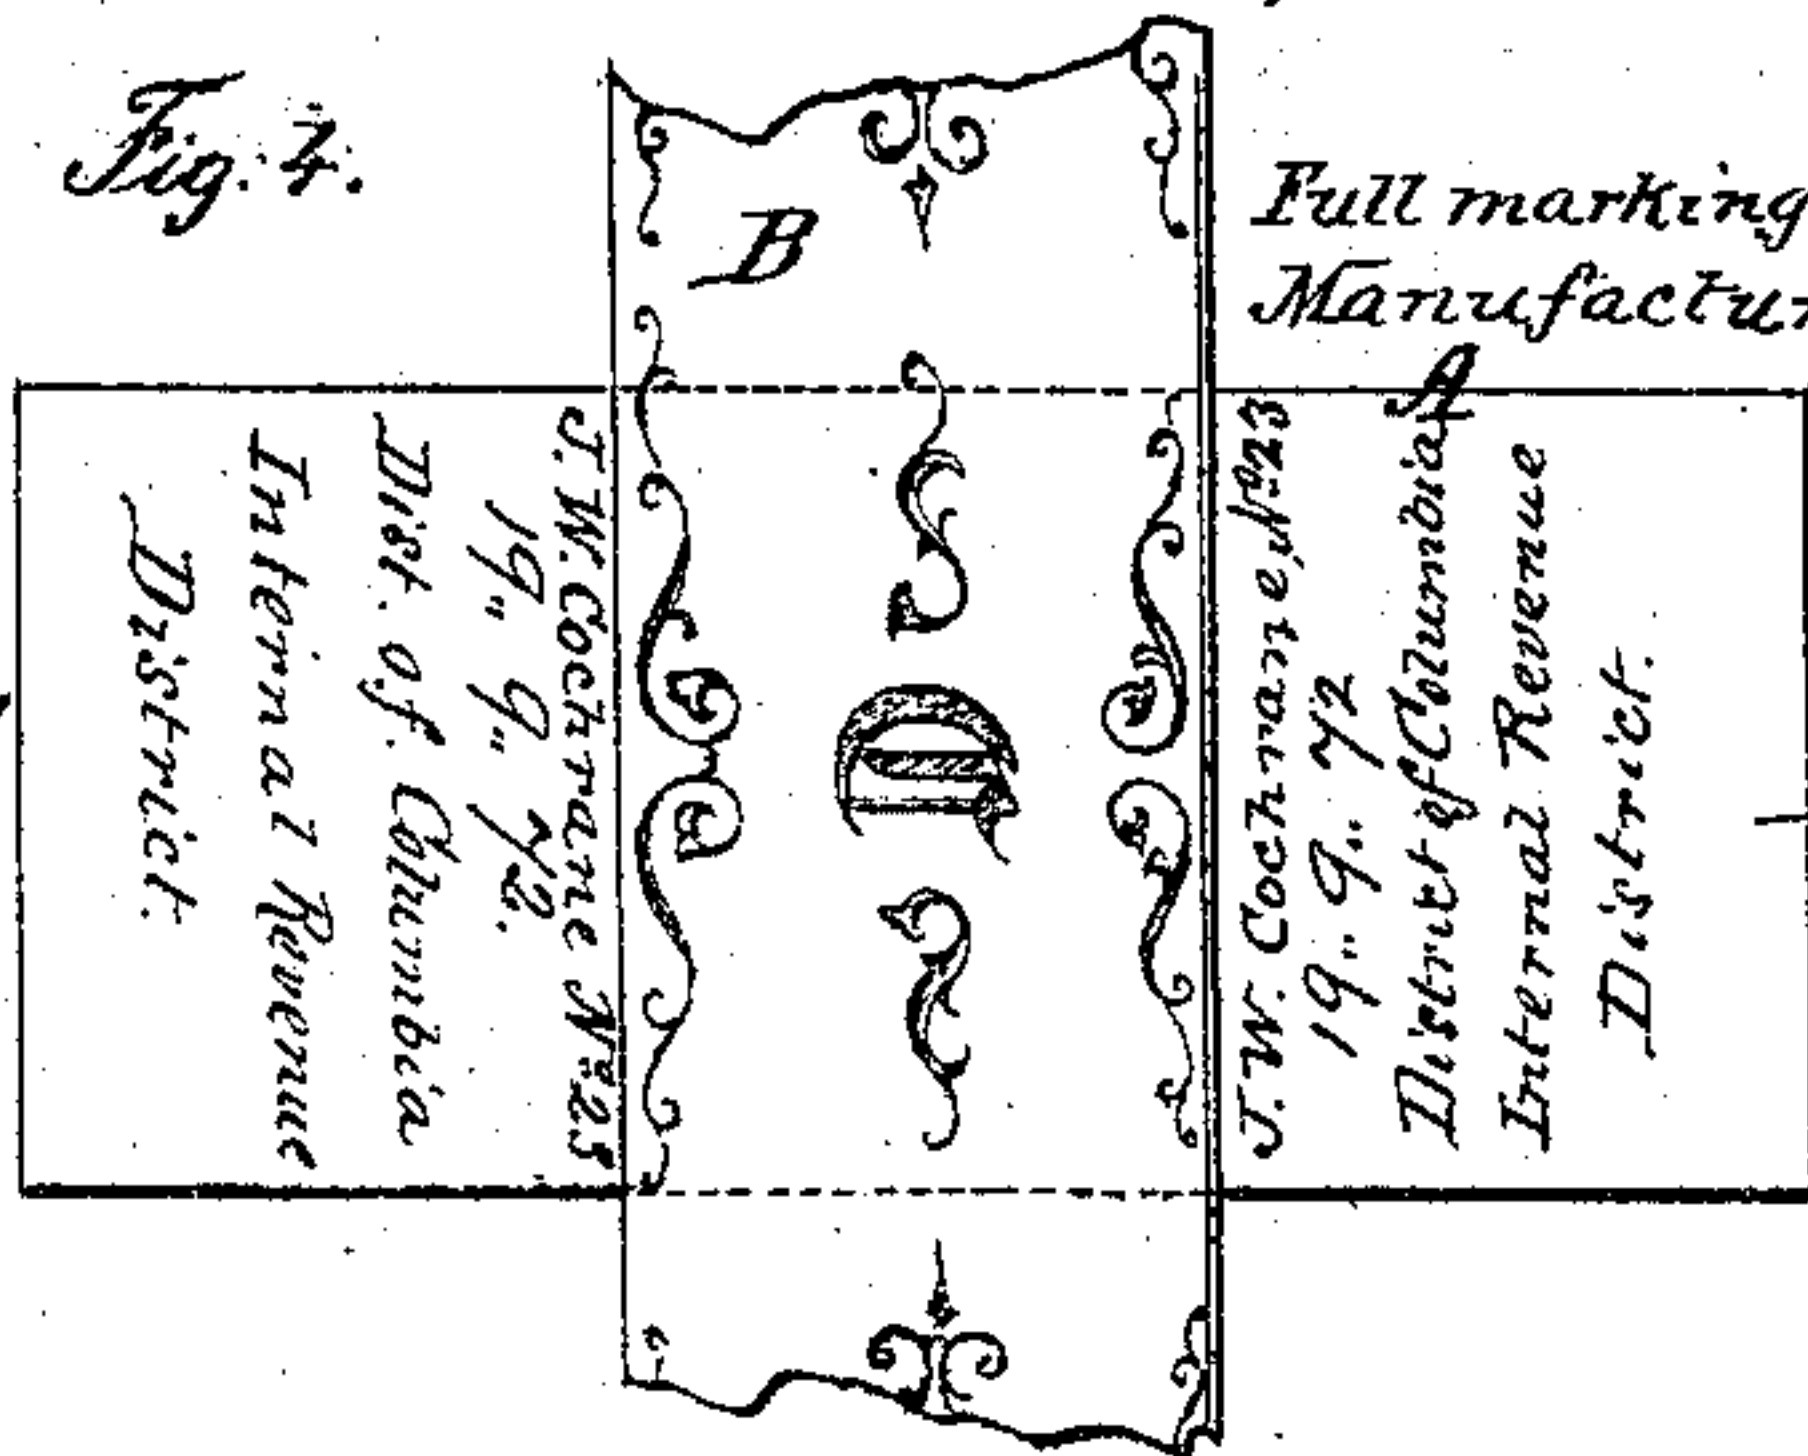 Fig. 4.
B
Full marking
Manufactur
A
J. W. Cochrane Nº 23
19" 9" 72.
Dist. of. Columbia
Internal Revenue
District.
J. W. Cochrane, Nº 23
19" 9" 72
District of Columbia
Internal Revenue
District.